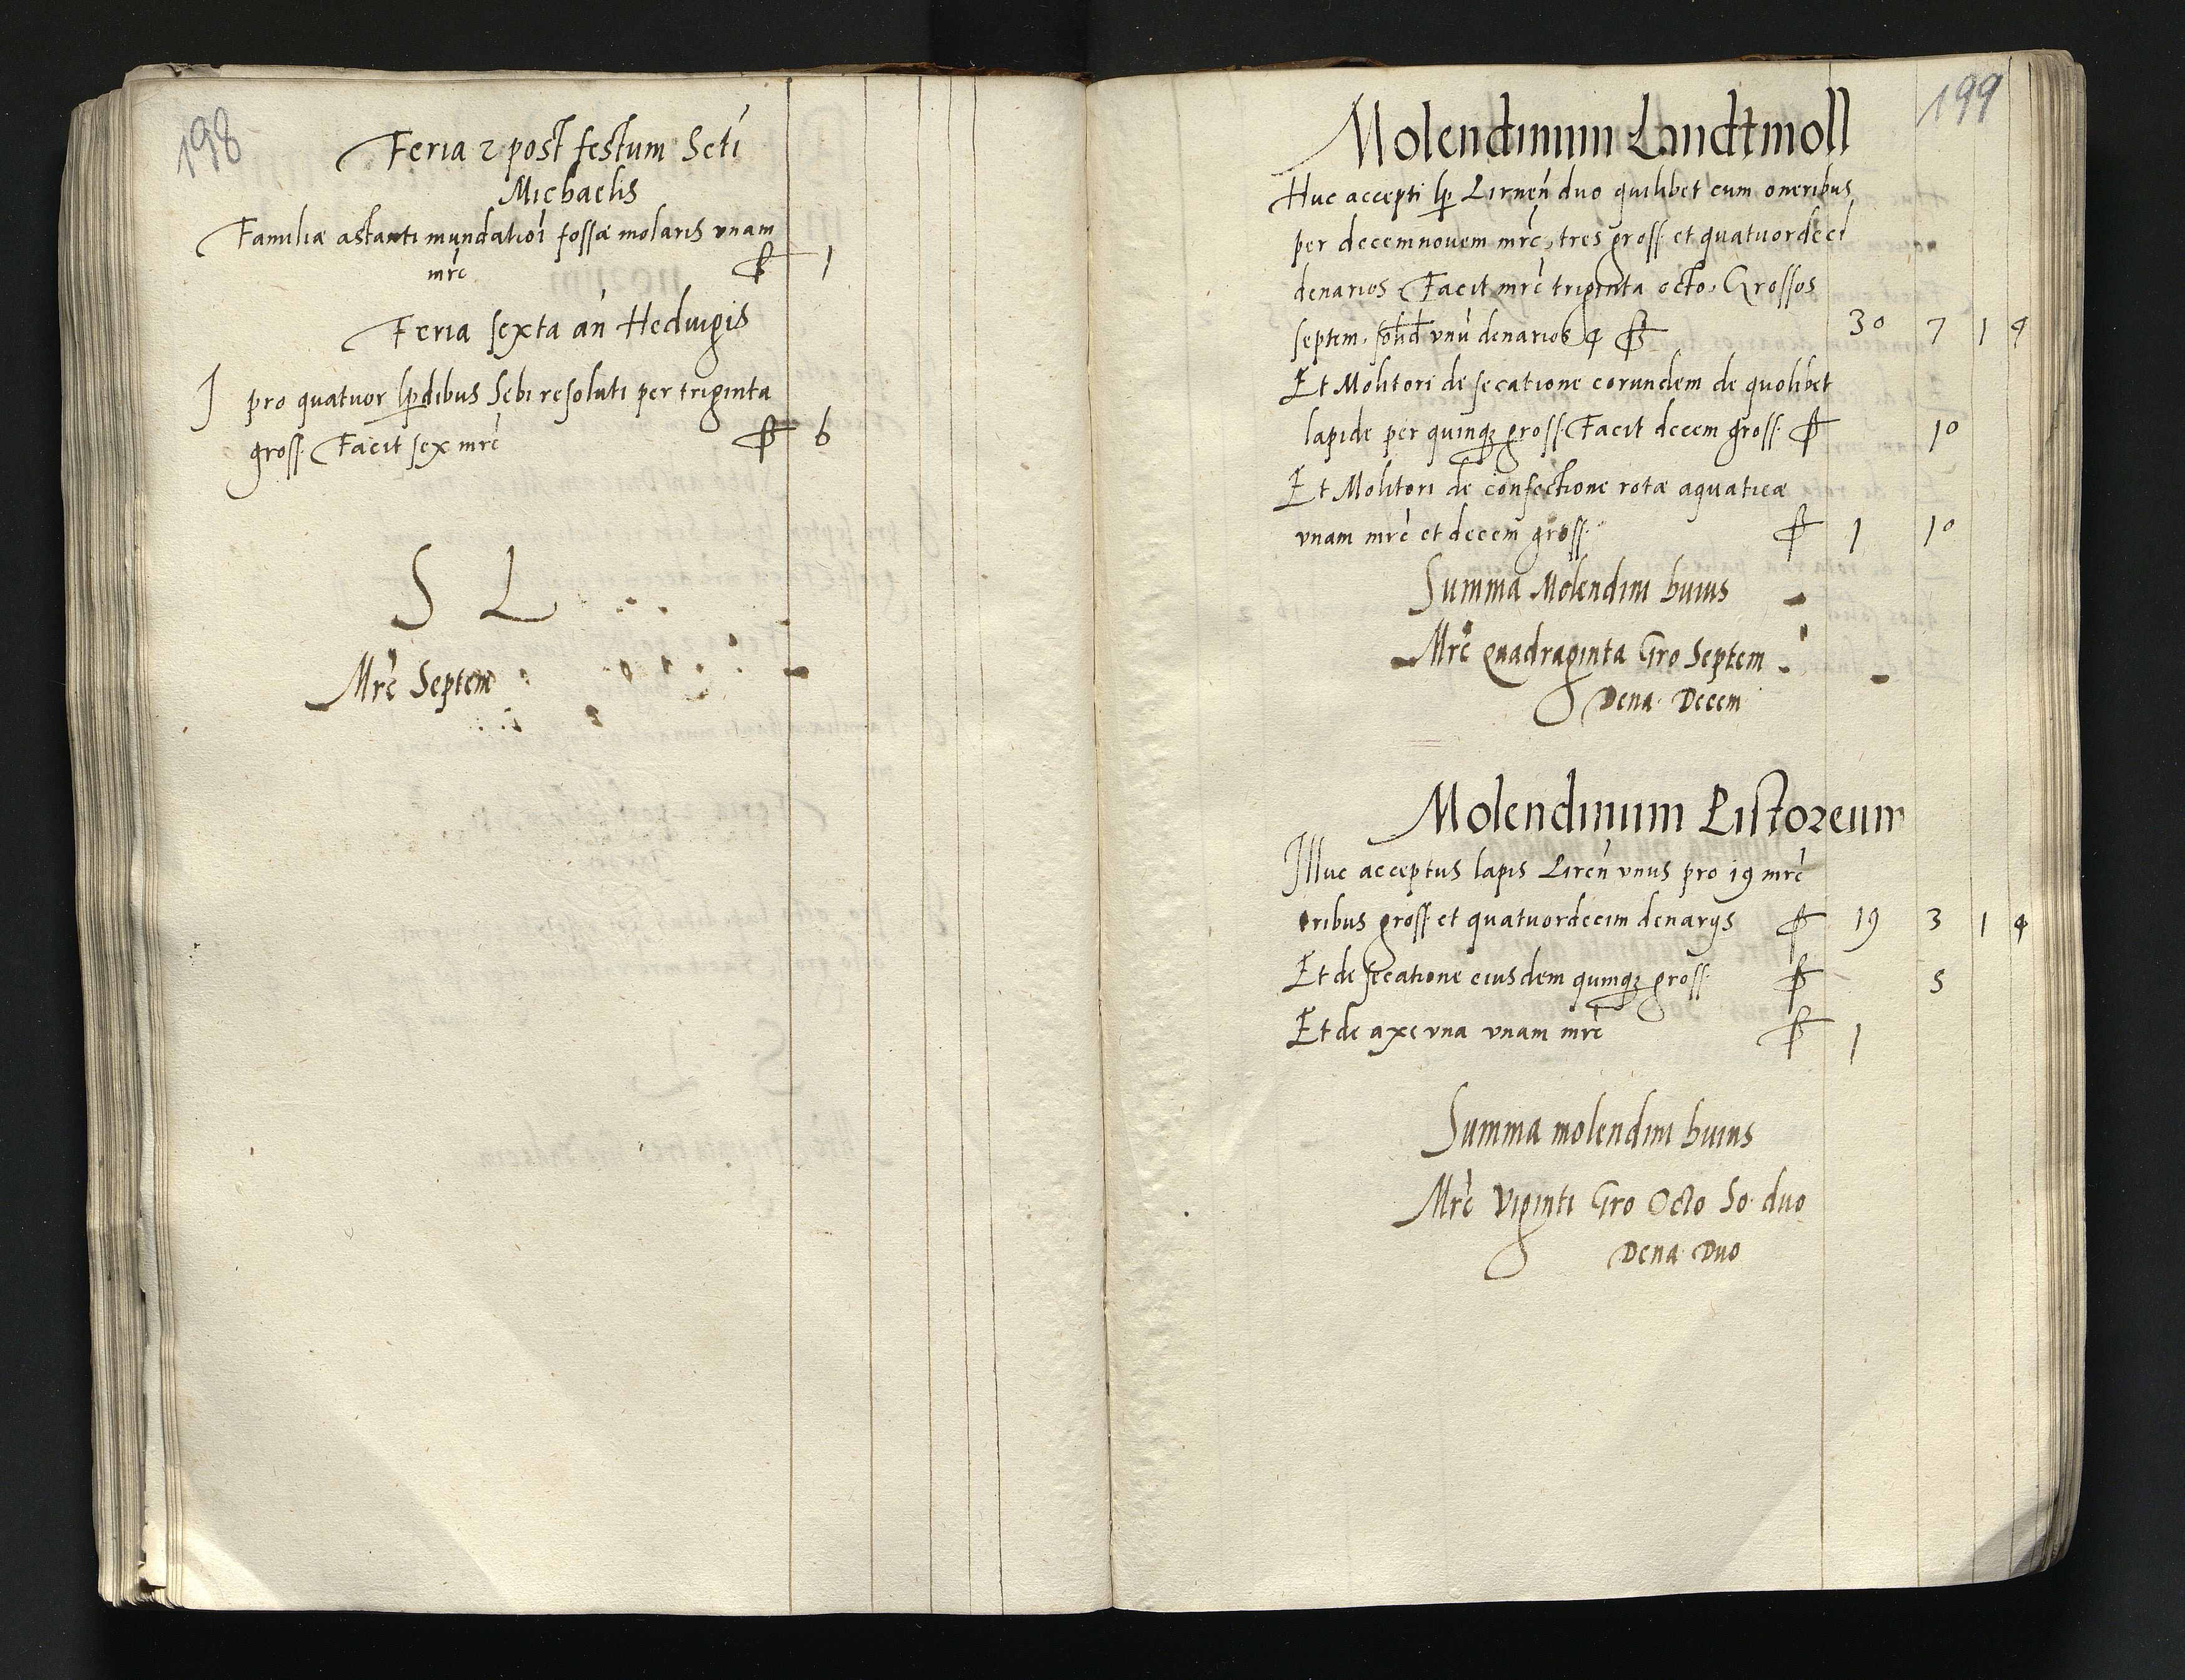 198
Feria 2 post festum Scti
Michaelis
Familiæ astanti mundatioi fossæ molaris vnam
mrc 1
Feria sexta an Hedwigis
J pro quatuor lpdibus Sebi resoluti per triginta
gross. Facit sex mrc 6
S L
Mrc Septem
199
Molendinum Landtmoll
Huc accepti lp Lirnen duo quilibet cum oneribus
per decemnouem mrc, tres gross. et quatuordeci
denarios Facit mrc triginta octo, Grossos
septem, solid vnu denarios 4 38 7 1 4
Et Molitori de secatione eorundem de quolibet
lapide per quinqz gross. Facit decem gross. 10
Et Molitori de confectione rotæ aquaticæ
vnam mrc et decem gross. 1 10
Summa Molendini huius
Mrc Quadraginta Gro Septem
Dena. Decem
Molendinum Pistoreum
Illuc acceptus lapis Liren vnus pro 19 mrc
tribus gross. et quatuordecim denarijs 19 3 1 4
Et de secatione eiusdem quinqz gross. 5
Et de axe vna vnam mrc 1
Summa molendini huius
Mrc Viginti Gro Octo So. duo
Dena. Duo